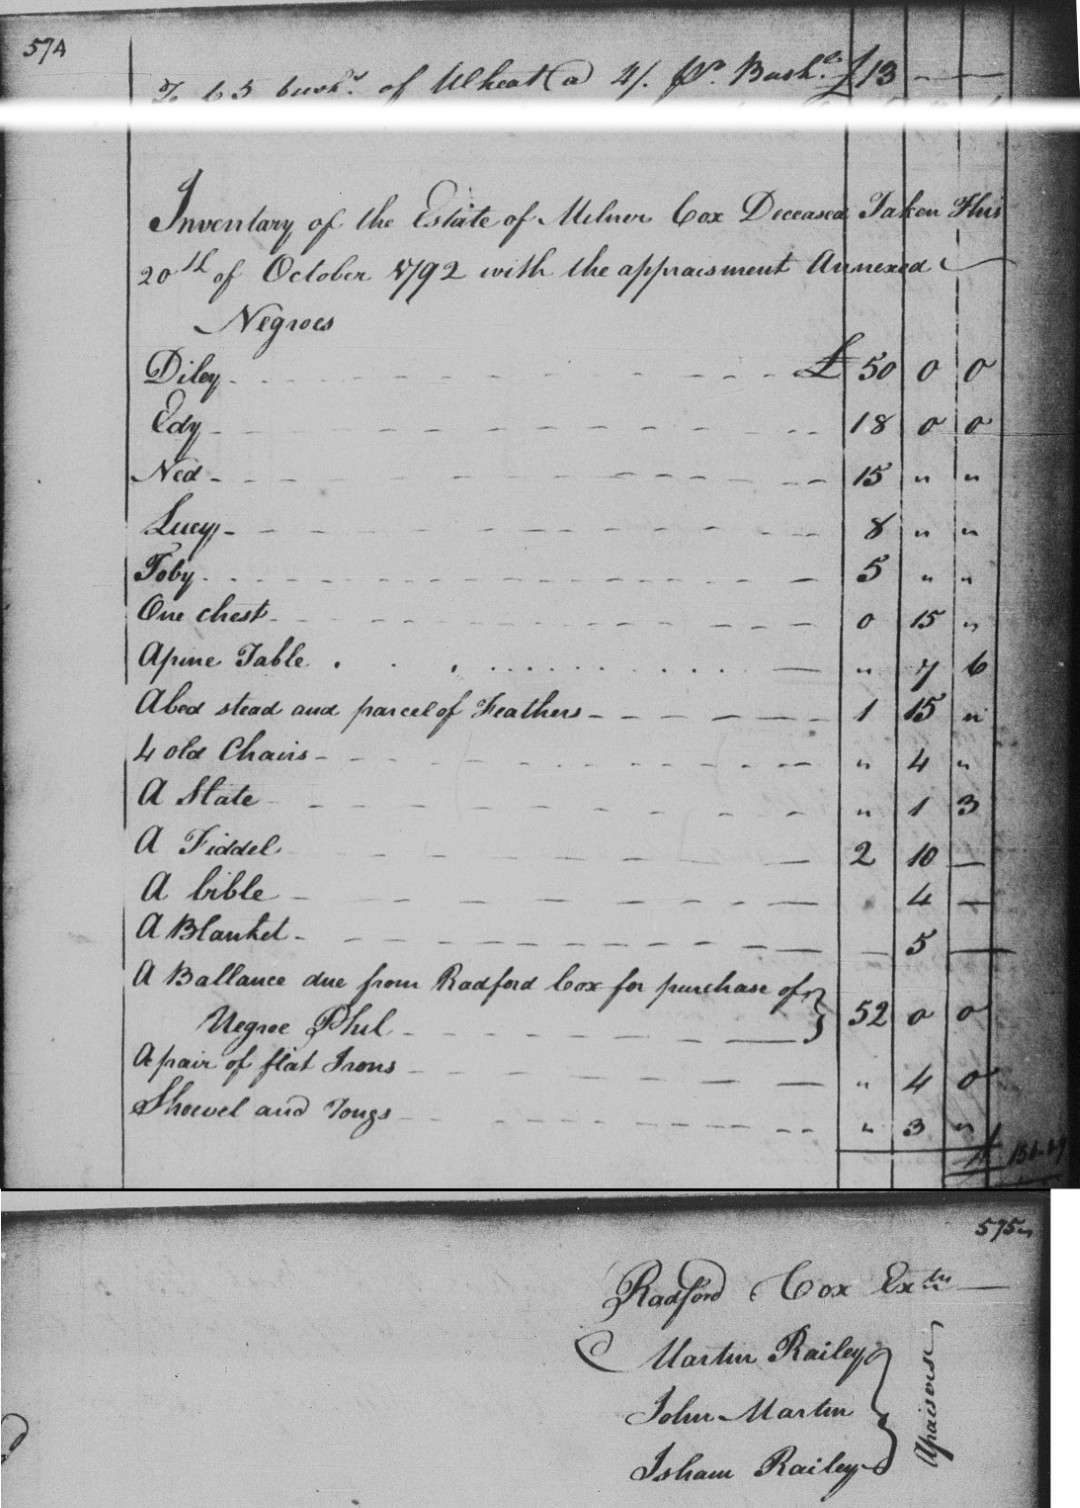 574
To 65 bush.s of Wheat @ 4/. pr. Bush.l £ 13 — —
Inventary of the Estate of Milner Cox Deceased Taken This
20th of October 1792 with the appraisment Annexed
Negroes
Diley £ 50 0 0
Edy 18 0 0
Ned 15 " "
Lucy 8 " "
Toby 5 " "
One chest 0 15 "
A pine Table " 7 6
A bed stead and parcel of Feathers 1 15 "
4 old Chairs " 4 "
A Slate " 1 3
A Fiddel 2 10 —
A bible 4 —
A Blanket — 5 —
A Ballance due from Radford Cox for purchase of
Negroe Phil 52 0 0
A pair of flat Irons " 4 0
Shoevel and Tongs " 3 "
£
575
Radford Cox Exr
Martin Railey
John Martin
Isham Railey
Apaisers